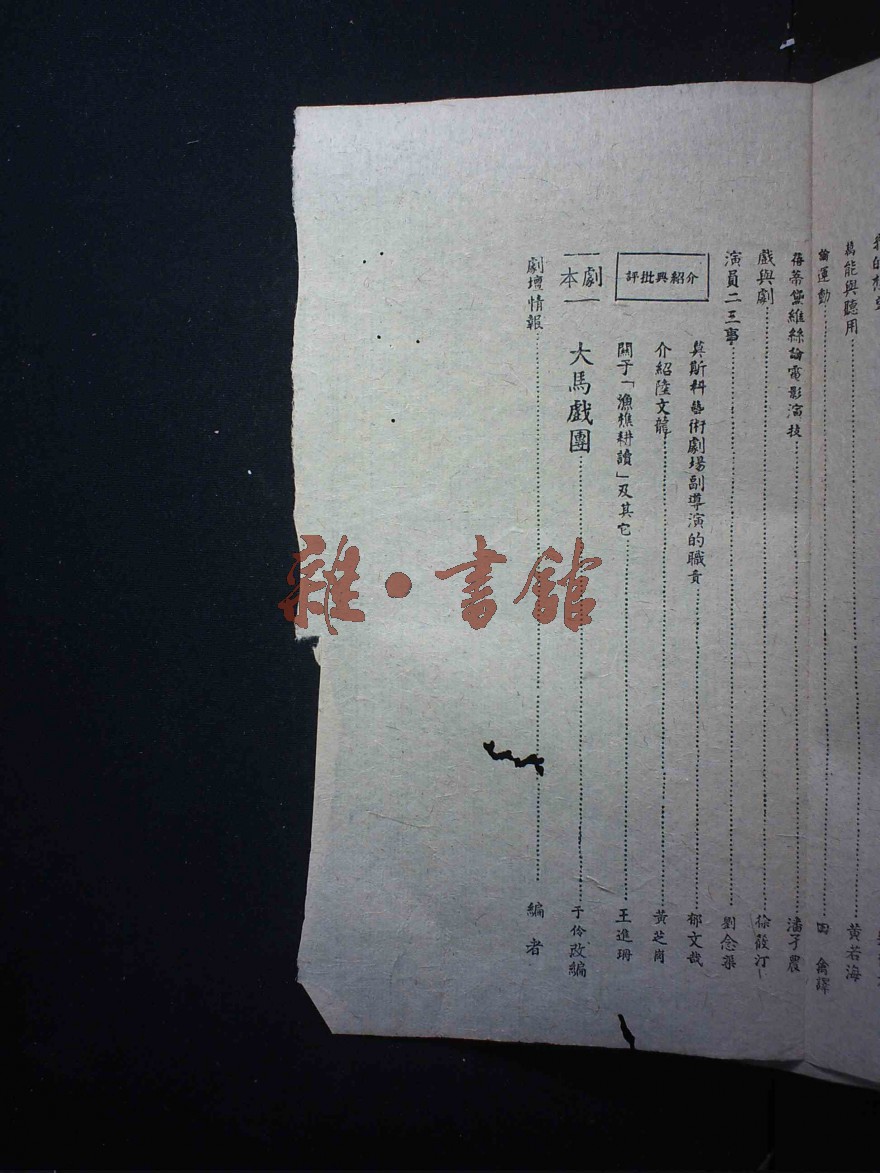 能與聽用……黃若海
論運動……田禽譯
蓓蒂黛維絲論電影演技……潘孑農
戲與劇……徐筱汀
演員二三事……劉念渠
介紹與批評
莫斯科藝術劇場副導演的職責……郁文哉
介紹陸文龍……黃芝岗
關于「漁樵耕讀」及其它……王進珊
劇本
大馬戲團……于伶改編
劇壇情報……編者
雜·書館